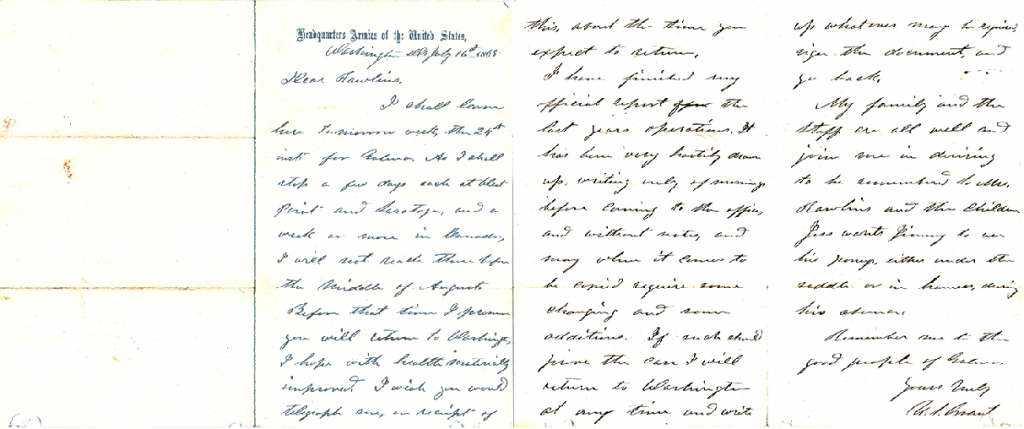 Headquarters Armies of the United States,
Washington D.C. July 16th 1865
Dear Rawlins,
I shall leave
here tomorrow week, the 24th
inst for Galena. As I shall
stop a few days each at West
Point and Saratoga, and a
week or more in Canada,
I will not reach there before
the middle of August.
Before that time I presume
you will return to Washington,
I hope with health materially
improved. I wish you would
telegraph me, on receipt of
this, about the time you
expect to return.
I have finished my
official report for the
last years operations. It
has been very hastily drawn
up, writing only of mornings
before coming to the office,
and without notes, and
may when it comes to
be copied require some
changing and some
additions. If such should
prove the case I will
return to Washington
at any time and write
up whatever may be required,
sign the document, and
go back.
My family and the
staff are all well and
join me in desiring
to be remembered to Mrs.
Rawlins and the children
Jess wants Jimmy to use
his pony, either under the
saddle or in harness, during
his absence.
Remember me to the
good people of Galena.
Yours Truly
U. S. Grant